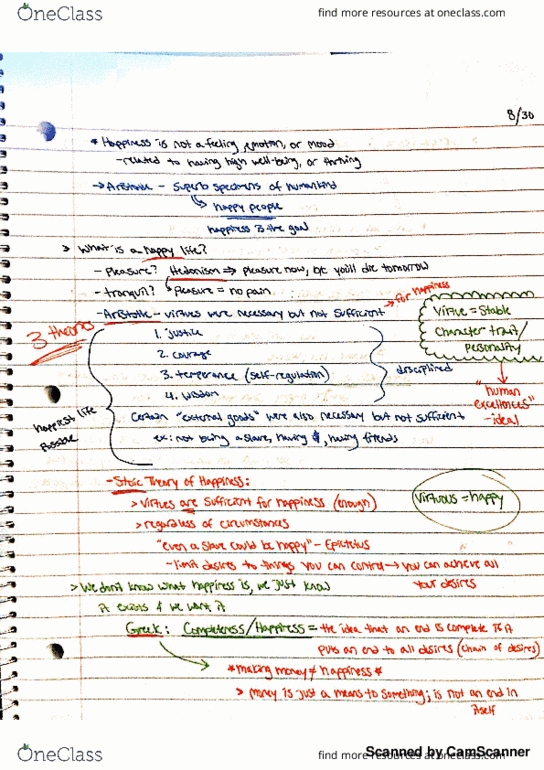 OneClass
find more resources at oneclass.com
8/30
* Happiness is not a feeling, emotion, or mood
- related to having high well-being, or thriving
→ Aristotle - Superb specimens of humankind
↳ happy people
happiness is the goal
> What is a happy life?
- Pleasure? Hedonism ⇒ pleasure now, b/c you'll die tomorrow
- tranquil? ↳ pleasure = no pain
→ for happiness
3 theories
- Aristotle - virtues were necessary but not sufficient
1. justice
2. courage
3. temperance (self-regulation)
4. wisdom
disciplined
Virtue = Stable
Character trait/
personality
"human
excellences"
- ideal
happiest life
possible
Certain "external goods" were also necessary but not sufficient
ex: not being a slave, having $, having friends
- Stoic Theory of Happiness:
> virtues are sufficient for happiness (enough)
Virtuous = happy
> regardless of circumstances
"even a slave could be happy" - Epictetus
- limit desires to things you can control → you can achieve all
your desires
> We don't know what happiness is, we just know
it exists & we want it
Greek: Completeness/Happiness = the idea that an end is complete if it
puts an end to all desires (chain of desires)
* making money ≠ happiness *
> money is just a means to something; is not an end in
itself
OneClass
find more resources at oneclass.com
Scanned by CamScanner